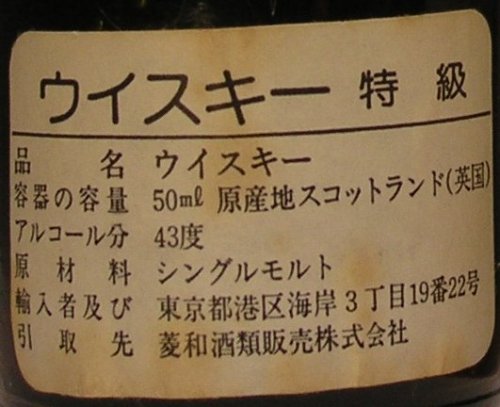 ウイスキー 特級
品名 ウイスキー
容器の容量 50ml 原産地スコットランド(英国)
アルコール分 43度
原材料 シングルモルト
輸入者及び 東京都港区海岸3丁目19番22号
引取先 菱和酒類販売株式会社